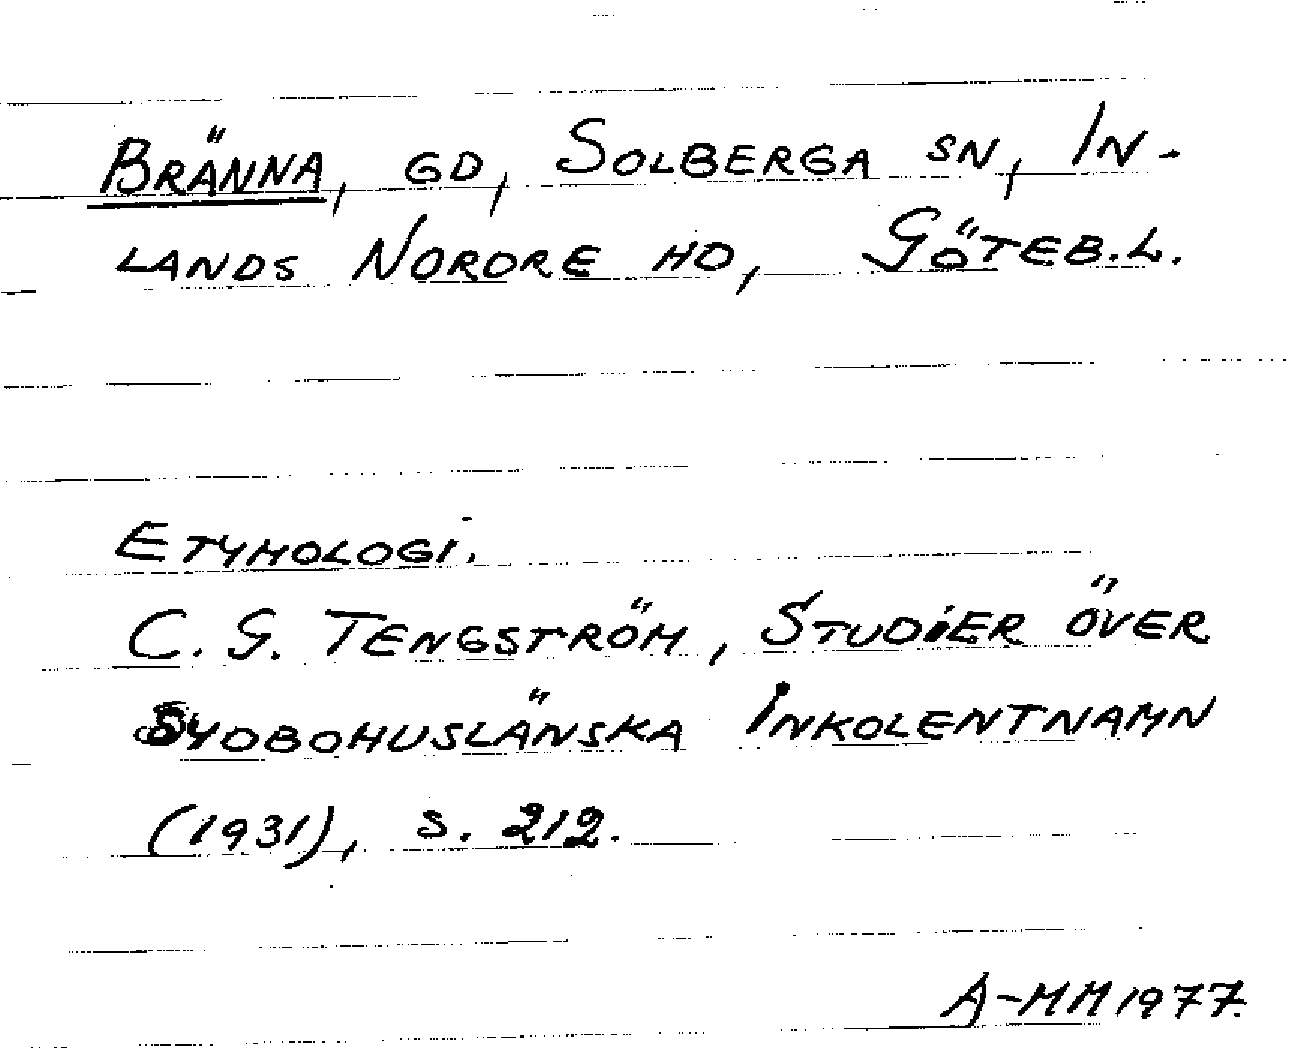 BRÄNNA, GD, SOLBERGA SN, IN-
LANDS NORDRE HD, GÖTEB.L.
ETYMOLOGI.
C. G. TENGSTRÖM, STUDIER ÖVER
SYDBOHUSLÄNSKA INKOLENTNAMN
(1931), S. 212.
A-MM 1977.